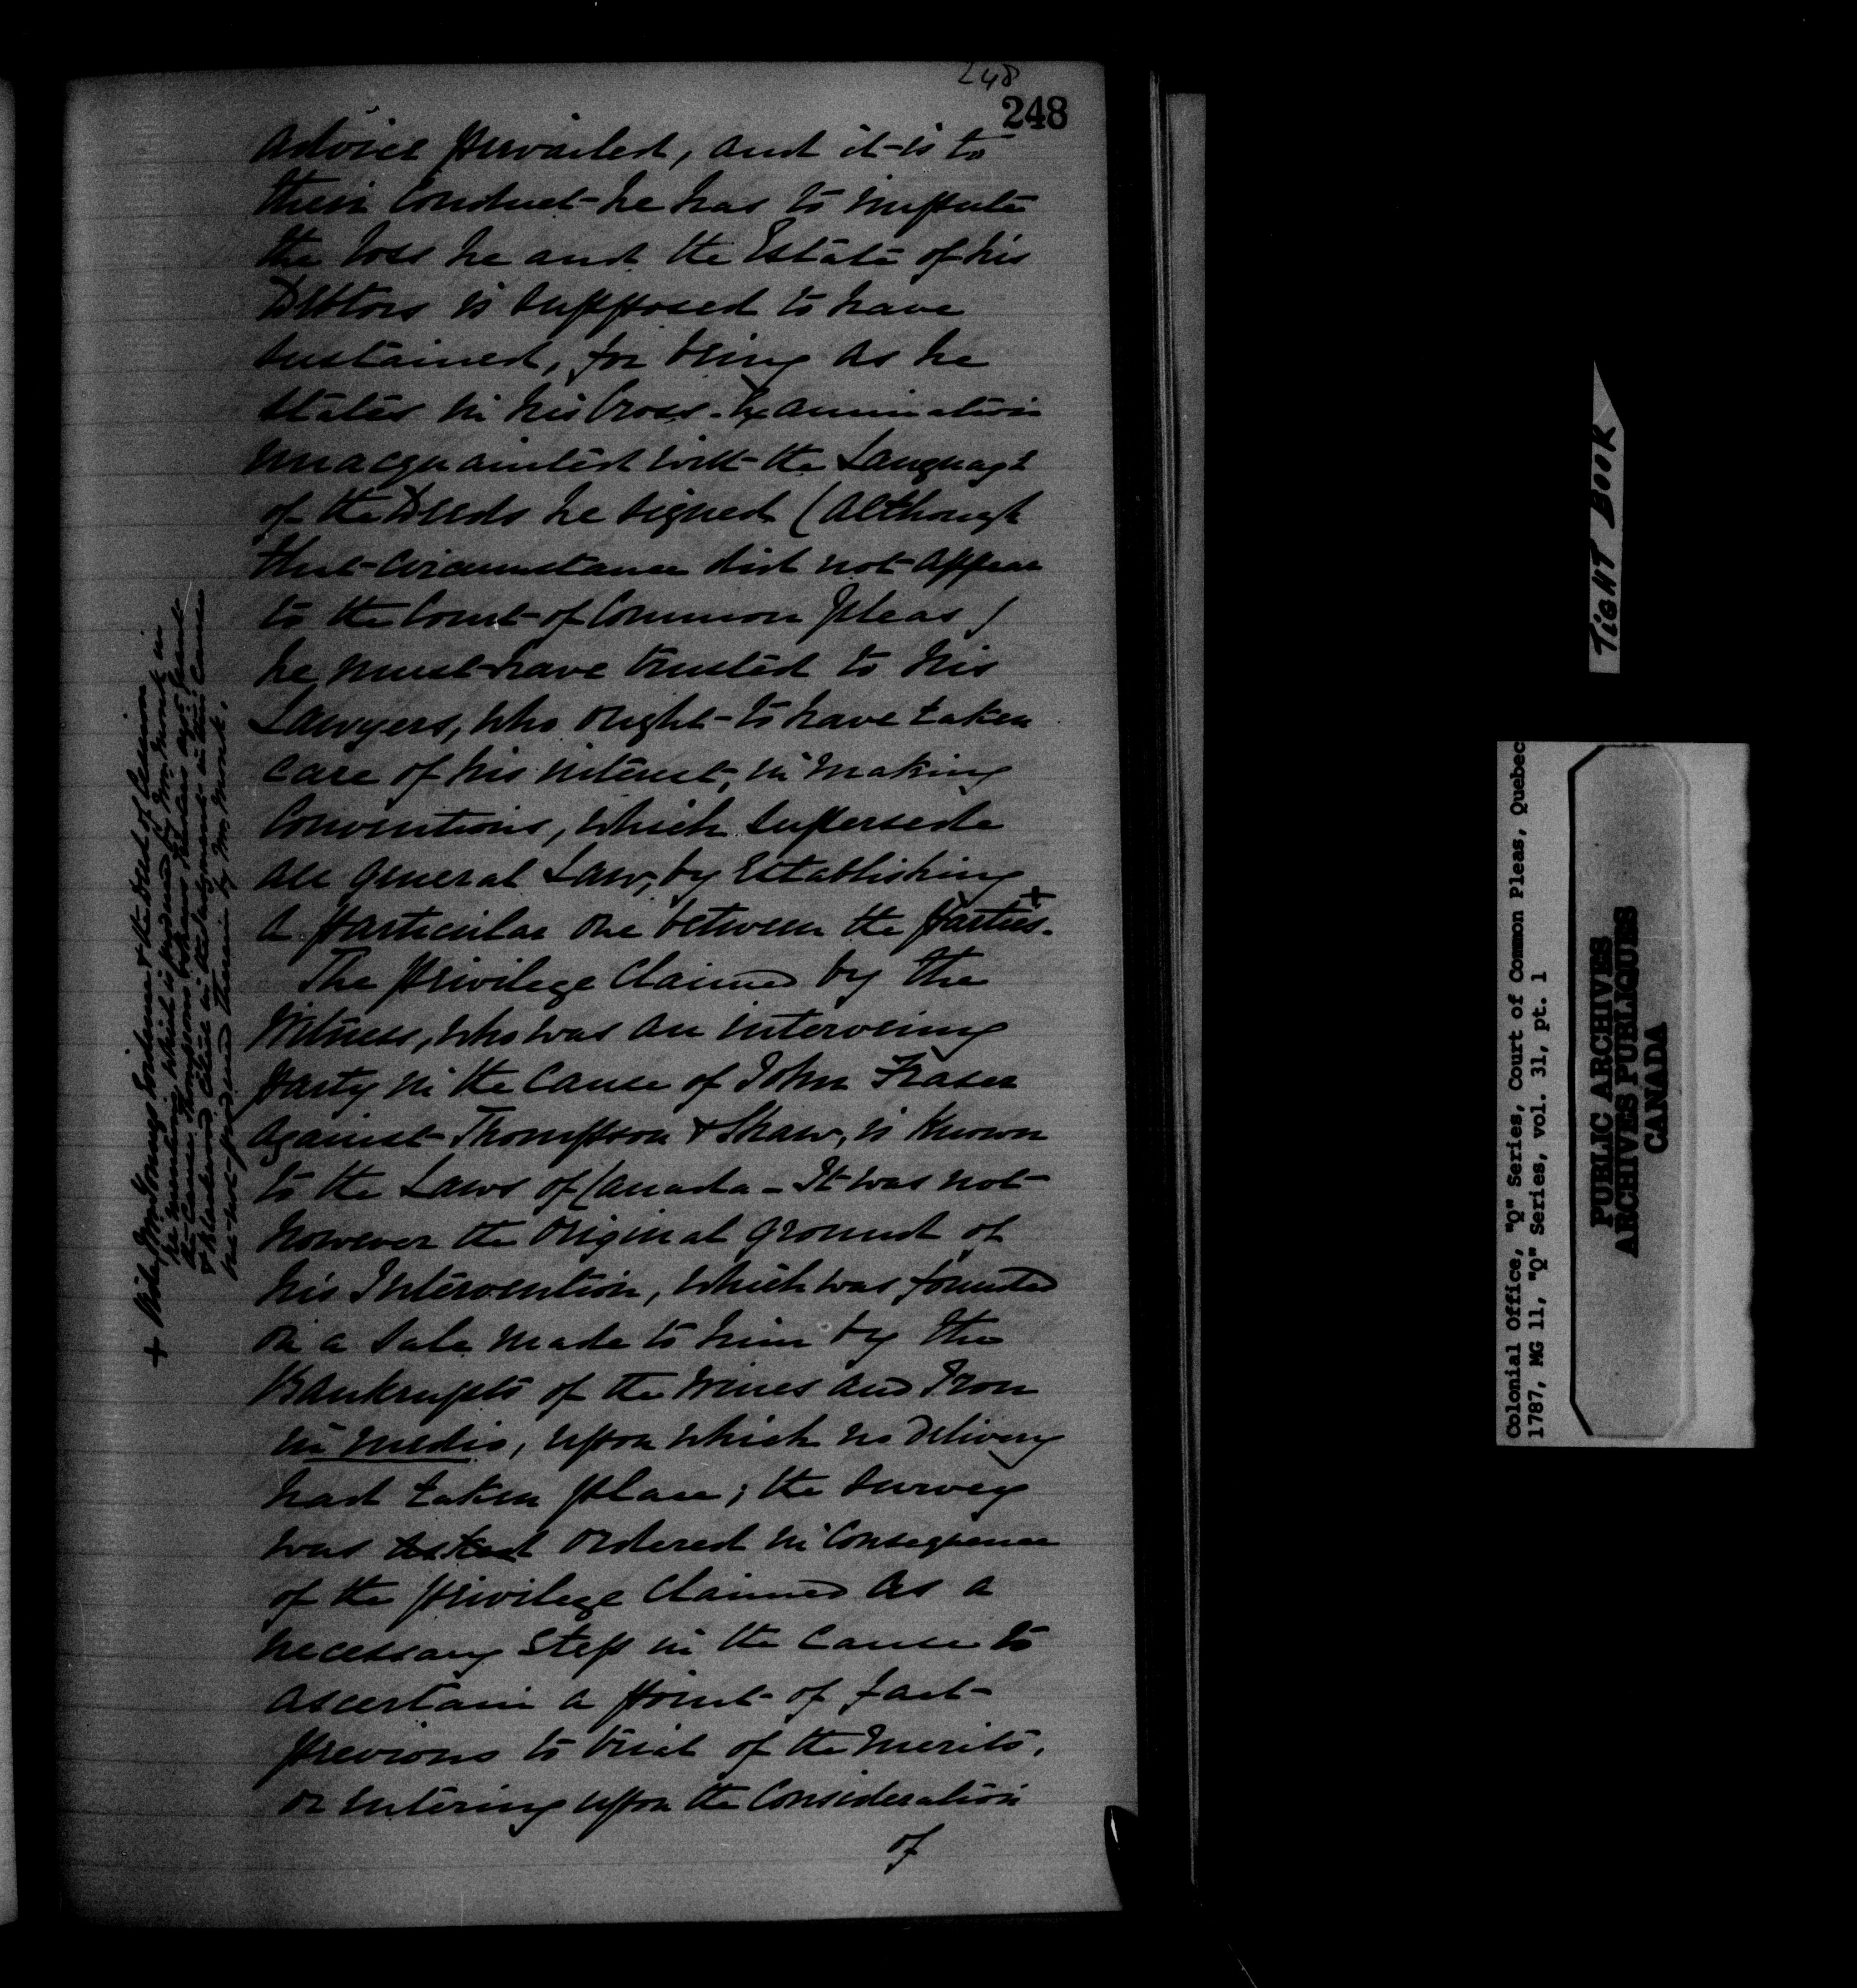 248
248
advice prevailed, and it is to
their Conduct he has to impute
the loss he and the Estate of his
Debtors is supposed to have
sustained, for being as he
states in his Cross-Examination
unacquainted with the Language
of the Deeds he signed (although
that circumstance did not appear
to the Court of Common Pleas)
he must have trusted to his
Lawyers, who ought to have taken
care of his interest, in making
Conventions, which supersede
all general Law, by establishing
a particular one between the parties. +
The privilege Claimed by the
Witness, who was an intervening
party in the Cause of John Fraser
against Thompson & Shaw, is known
to the Laws of Canada - It was not
however the original ground of
his Intervention, which was founded
on a Sale made to him by the
Bankrupts of the Wines and Iron
in medio, upon which no Delivery
had taken place; the survey
was ordered in Consequence
of the privilege Claimed as a
necessary Step in the Cause to
ascertain a point of fact
previous to trial of the Merits,
or entering upon the Consideration
of
+ Note, Evidence & the Deed of Cession
he mentions which is produced by Mr. Monk in
the Cause
& Blackwood cited in the Judgment in this Cause
he not produced therein by Mr. Monk.
TIGHT BOOK
Colonial Office, "Q" Series, Court of Common Pleas, Quebec
1787, MG 11, "Q" Series, vol. 31, pt. 1
PUBLIC ARCHIVES
ARCHIVES PUBLIQUES
CANADA